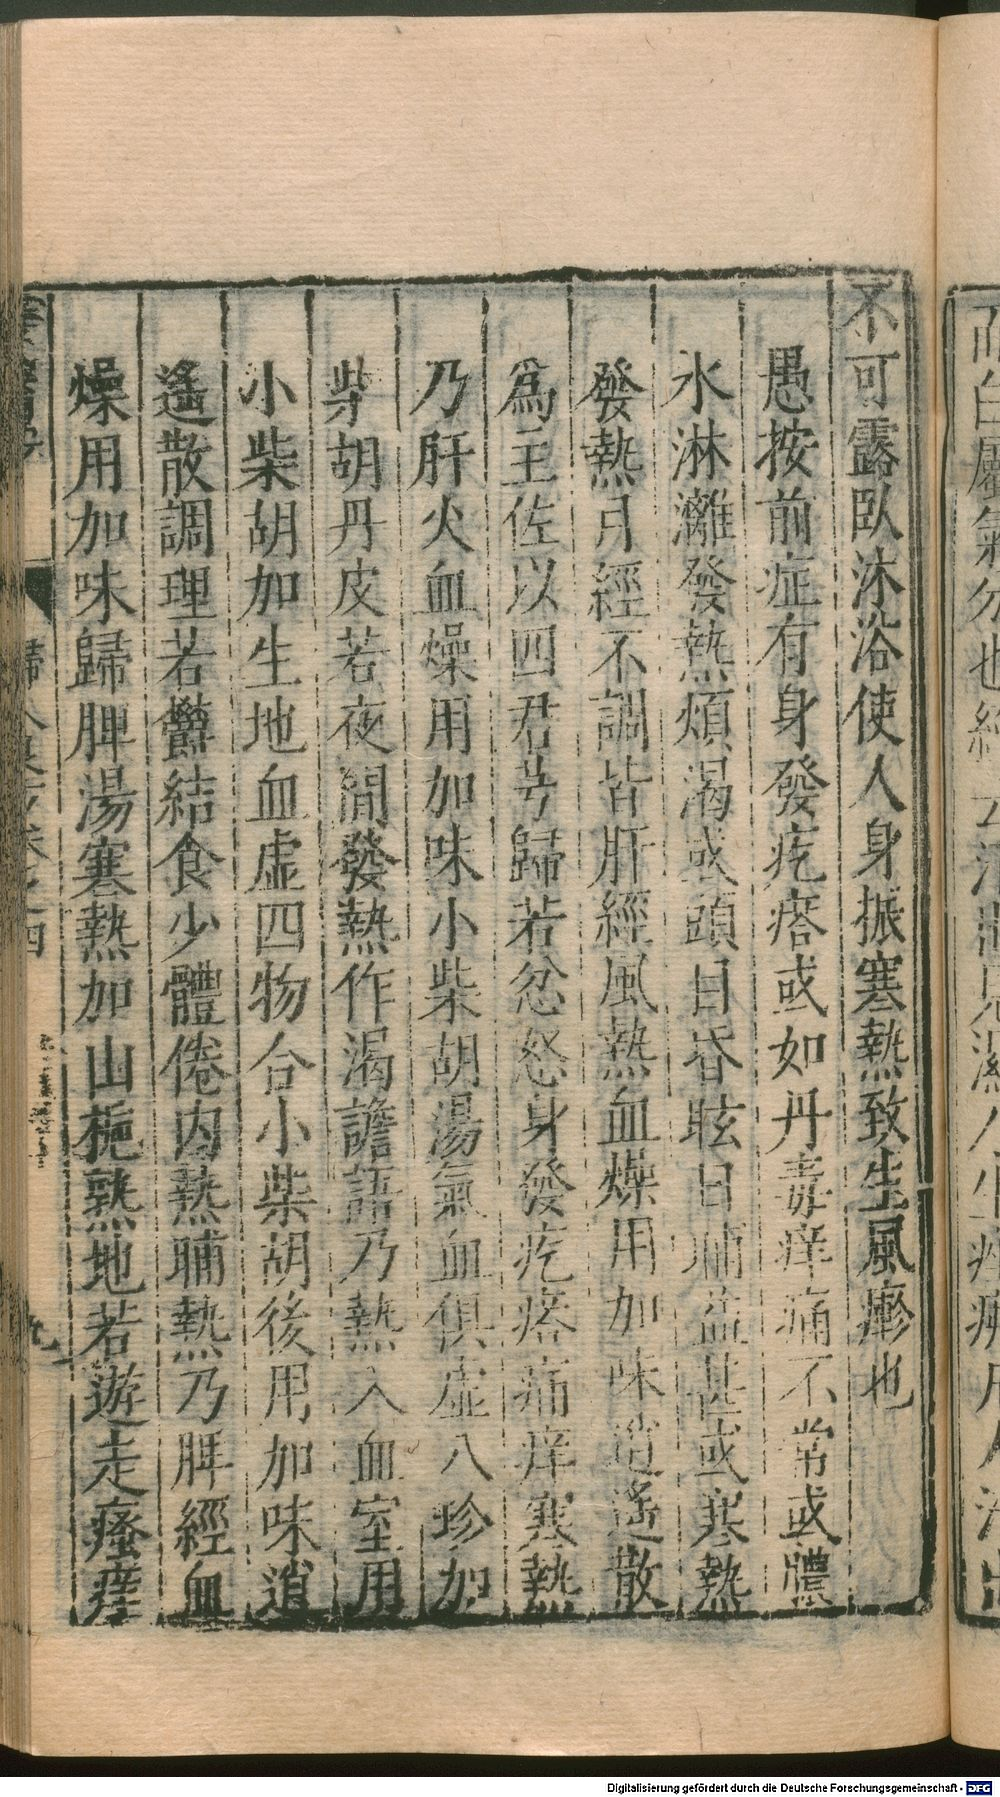 不可露臥沐浴使人身振寒熱致生風㾙也
愚按前症有身發疙瘩或如丹毒痒痛不常或膿
水淋灕發熱煩渴或頭目昏眩日晡益甚或寒熱
發熱月經不調皆肝經風熱血燥用加味逍遙散
爲主佐以四君芎歸若忿怒身發疙瘩痛痒寒熱
乃肝火血燥用加味小柴胡湯氣血俱虛八珍加
柴胡丹皮若夜間發熱作渴譫語乃熱入血室用
小柴胡加生地血虛四物合小柴胡後用加味逍
遙散調理若鬱結食少體倦內熱晡熱乃脾經血
燥用加味歸脾湯寒熱加山梔熟地若遊走瘙痒
Digitalisierung gefördert durch die Deutsche Forschungsgemeinschaft - DFG